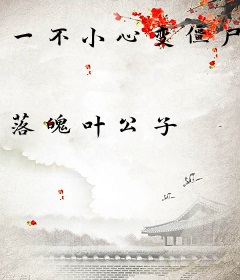 一不小心变僵尸
落魄叶公子